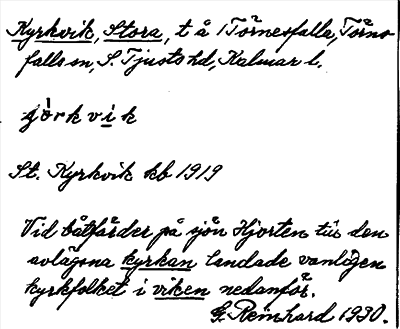 Kyrkvik, Stora, t å 1 Törnesfalla, Törns-
falls sn, S Tjusts hd, Kalmar l.
çö̀rkvik
St. Kyrkvik kb 1919
Vid båtfärder på sjön Hjorten till den
avlägsna kyrkan landade vanligen
kyrkfolket i viken nedanför.
G. Reinhard 1930.